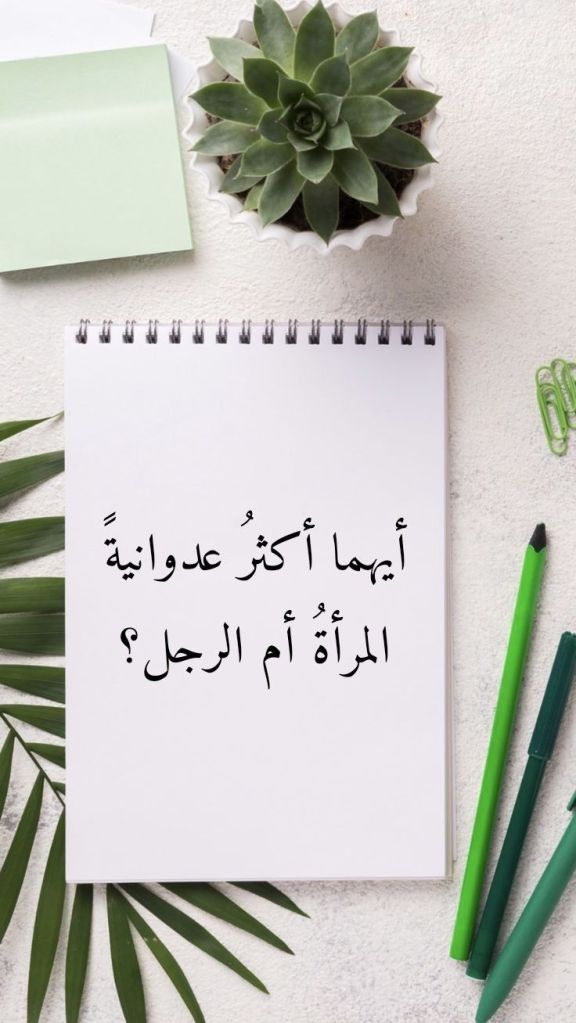 أيهما أكثرُ عدوانيةً
المرأةُ أم الرجل؟